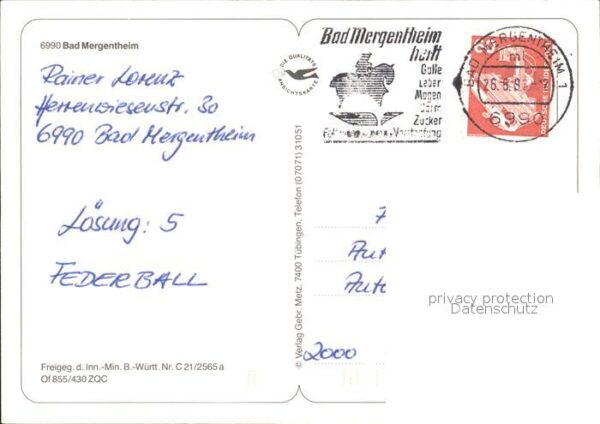 6990 Bad Mergentheim
Rainer Lorenz
Herrenwiesenstr. 30
6990 Bad Mergentheim
Lösung: 5
FEDERBALL
Freigeg. d. Inn.-Min. B.-Württ. Nr. C 21/2565 a
Of 855/430 ZQC
DIE QUALITÄTS
ANSICHTSKARTE
© Verlag Gebr. Metz, 7400 Tübingen, Telefon (07071) 31051
Bad Mergentheim
hilft
Galle
Leber
Magen
Darm
Zucker
Verstopfung
BAD MERGENTHEIM 1
m
6990
2000
privacy protection
Datenschutz